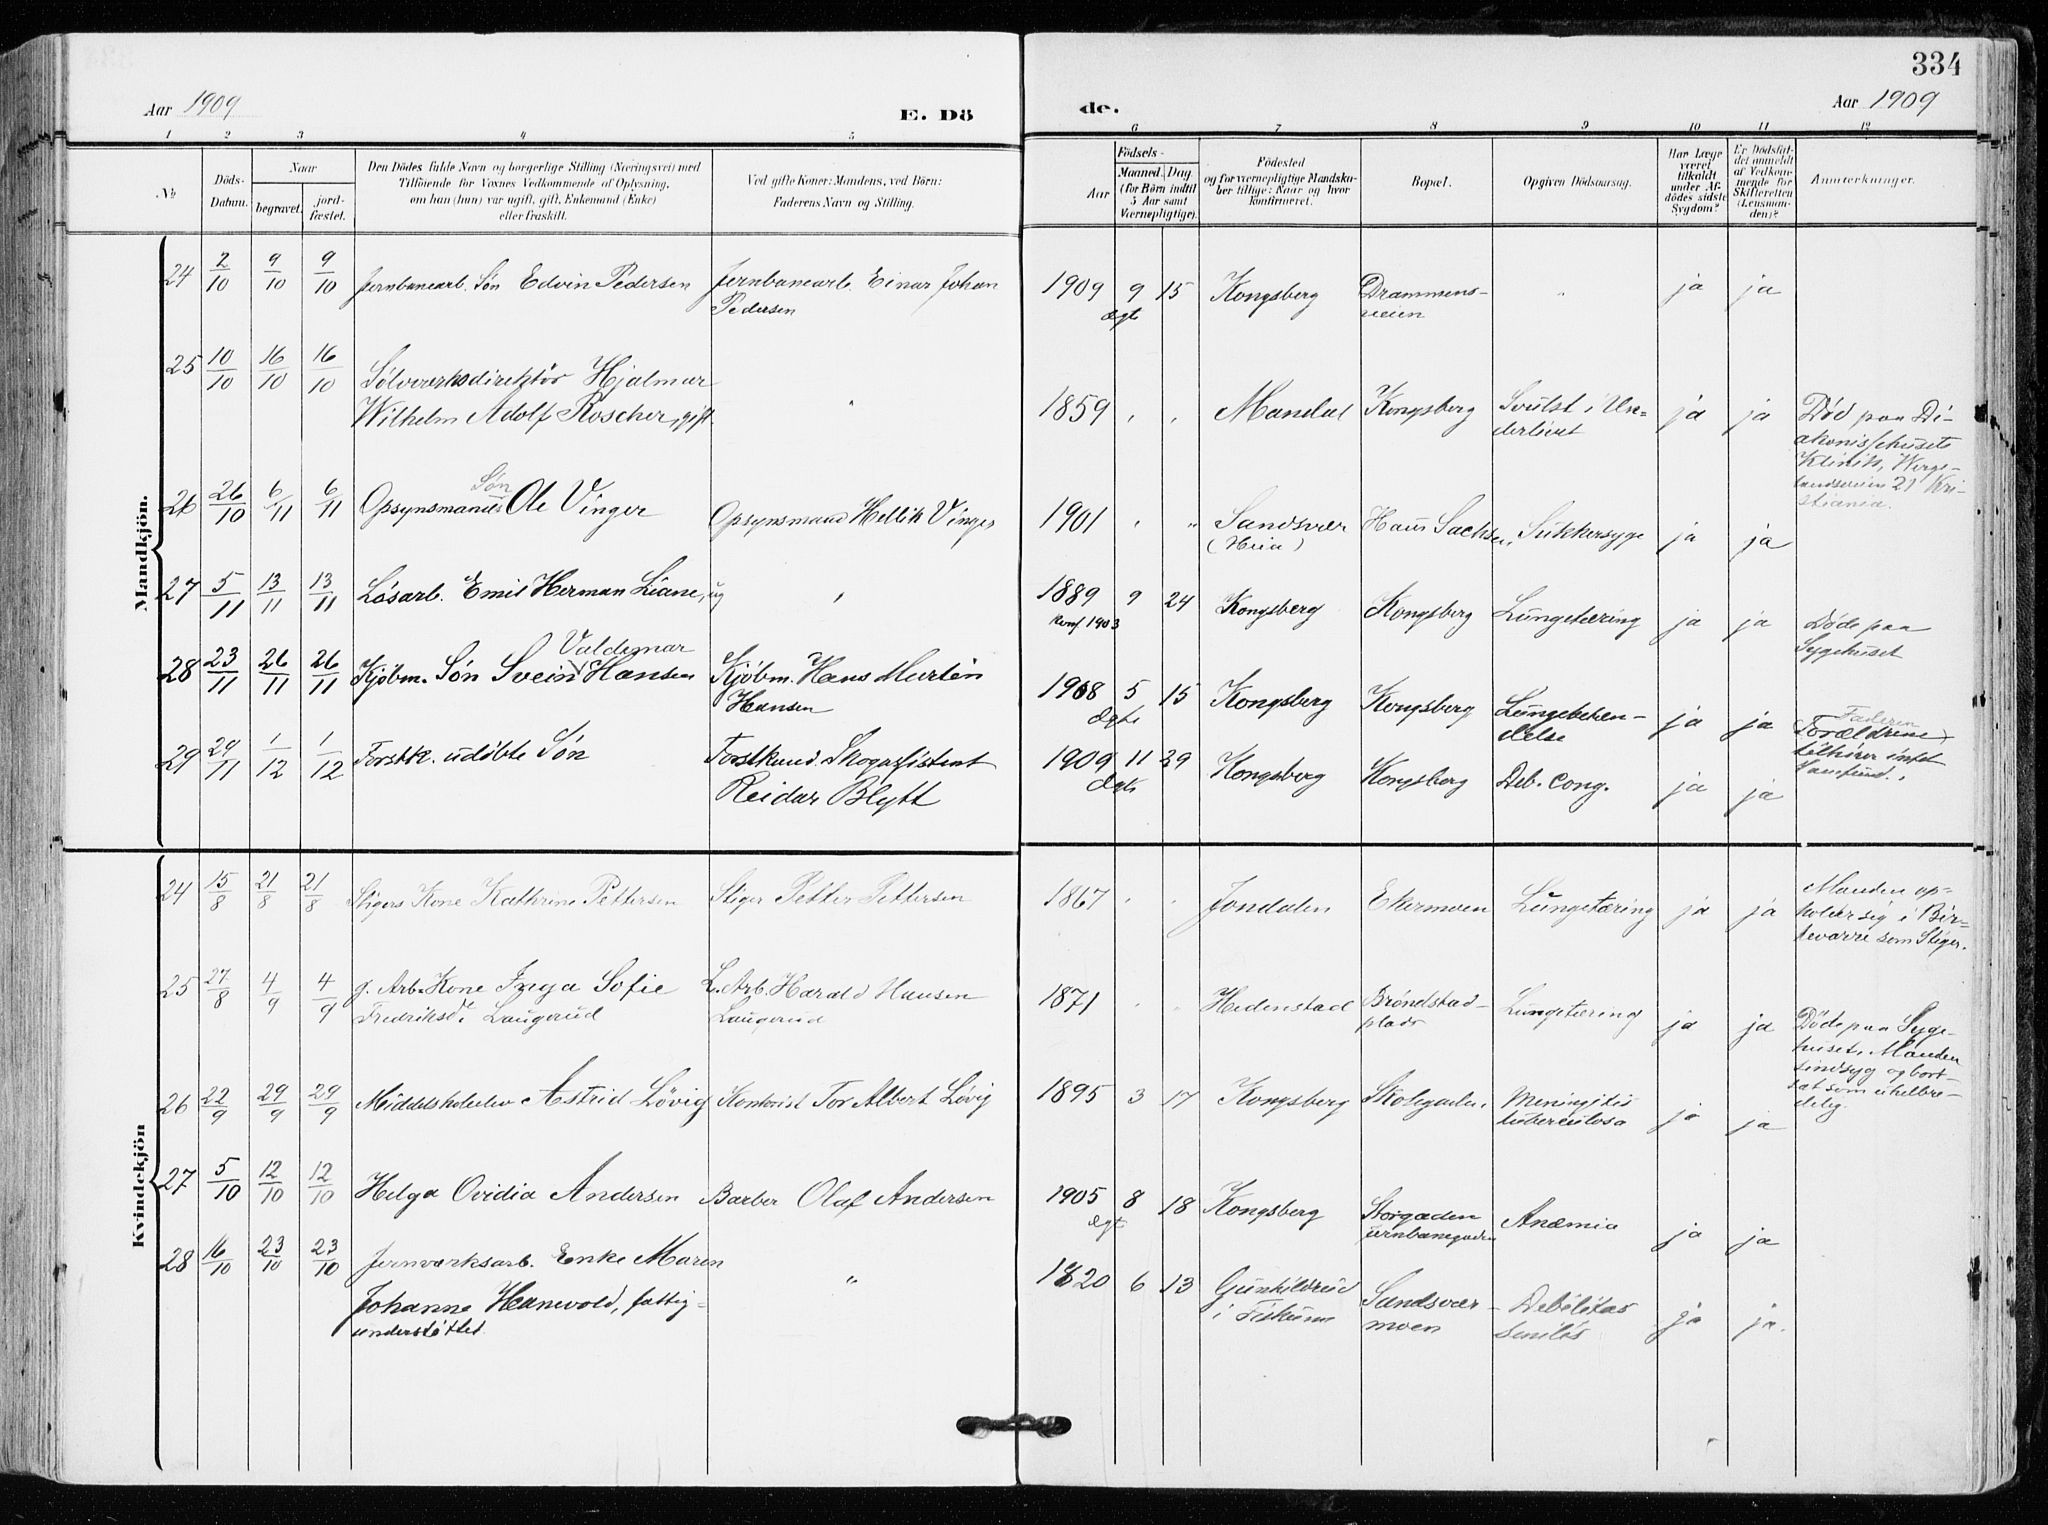 334
Aar 1909
E. Dö
de.
Aar 1909
1 2 3 4 5 6 7 8 9 10 11 12
№
Döds-
Datum.
Naar
begravet.
jord-
fæstet.
Den Dödes fulde Navn og borgerlige Stilling (Næringsvei) med
Tilföiende for Voxnes Vedkommende af Oplysning,
om han (hun) var ugift, gift, Enkemand (Enke)
eller fraskilt.
Ved gifte Koner: Mandens, ved Börn:
Faderens Navn og Stilling.
Födsels-
Aar
Maaned. Dag
(for Börn indtil
5 Aar samt
Værnepligtige).
Födested
og for værnepligtige Mandska-
ber tillige: Naar og hvor
konfirmeret.
Bopæl.
Opgiven Dödsaarsag.
Har Læge
været
tilkaldt
under Af-
dödes sidste
Sygdom?
Er Dödsfal-
det anmeldt
af Vedkom-
mende for
Skifteretten
(Lensman-
den)?
Anmærkninger.
Mandkjön.
24 2/10 9/10 9/10 Jernbanearb. Søn Edvin Pedersen Jernbanearb. Einar Johan
Pedersen
1909 9 15 Kongsberg Drammens-
veien " ja ja
ægte
25 10/10 16/10 16/10 Sølvværksdirektør Hjalmar
Wilhelm Adolf Roscher, gift. "
1859 " " Mandal Kongsberg Svulst i Un-
derlivet ja ja Død paa Di-
akonissehusets
Klinik, Werge-
landsveien 21 Kri-
stiania.
26 26/10 6/11 6/11 Opsynsmands Søn Ole Vinger Opsynsmand Hellik Vinger
1901 " " Sandsvær
(Heia) Haus Sachsen, Sukkersyge ja ja
27 5/11 13/11 13/11 Løsarb. Emil Herman Liane, ug "
1889 9 24 Kongsberg Kongsberg Lungetæring ja ja Døde paa
Sygehuset
Konf. 1903
28 23/11 26/11 26/11 Kjøbm. Søn Svein Valdemar Hansen Kjøbm. Hans Martin
Hansen
1908 5 15 Kongsberg Kongsberg Lungebetæn-
delse ja ja
ægte
29 29/11 1/12 1/12 Forstk. udøbte Søn Forstkand. Skogassistent
Reidar Blytt
1909 11 29 Kongsberg Kongsberg Deb. cong. ja ja Faderen
Forældrene
tilhører intet
Samfund.
ægte
Kvindekjön
24 15/8 21/8 21/8 Stigers Kone Kathrine Pettersen Stiger Petter Pettersen
1867 " " Jondalen Ekermoen Lungetæring ja ja Manden op-
holder sig i Bir-
tevarre som Stiger.
25 27/8 4/9 4/9 g. Arb. Kone Inga Sofie
Fredriksd. Laugerud L. Arb. Harald Hansen
Laugerud
1871 " " Hedenstad Brøndstad-
plads Lungetæring ja ja Døde paa Syge-
huset. Manden
sindsyg og bort-
sat som uhelbre-
delig.
26 22/9 29/9 29/9 Middelskoleelev Astrid Løvig Kontorist Tor Albert Løvig
1895 3 17 Kongsberg Skolegaden. Meningitis
tuberculosa ja ja
27 5/10 12/10 12/10 Helga Ovidia Andersen Barber Olaf Andersen
1905 8 18 Kongsberg Storgaden
Jernbanegaden Anæmia ja ja
ægt.
28 16/10 23/10 23/10 Jernværksarb. Enke Maren
Johanne Hanevold, fattig-
understøttet "
1820 6 13 Gunhildrud
i Fiskum Sandsvær-
moen Debilitas
senilis ja ja.